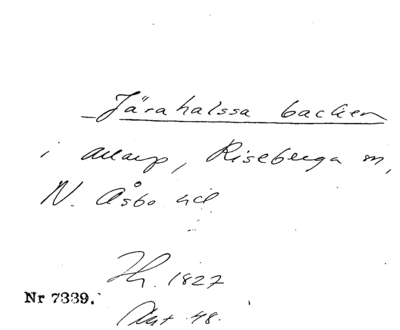 Järahalssa backen
i Allarp, Riseberga sn,
N. Åsbo hd
Jh. 1827
Nr 7339.
Akt 48.